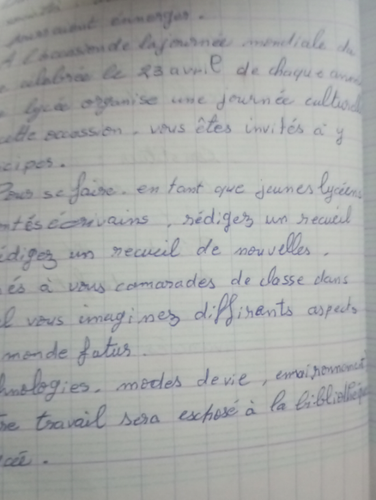 pourraient émerger.
A l'occasion de la journée mondiale du
célébrée le 23 avril de chaque année
lycée organise une journée culturel
cette occassion, vous êtes invités à y
ciper.
Pour se faire, en tant que jeunes lycéens
ntés écrivains, rédigez un recueil
édigez un recueil de nouvelles,
és à vous camarades de classe dans
l vous imaginez différents aspects
monde futur.
hnologies, modes de vie, environnement
re travail sera exchosé à la bibliothèque
cée.